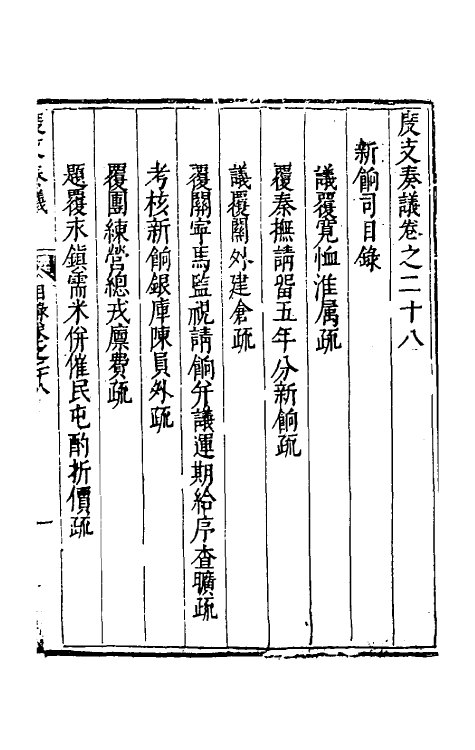 度支奏議卷之二十八
新餉司目錄
議覆寛恤淮属疏
覆秦撫請畱五年分新餉疏
議覆關外建倉疏
覆關寧馬監視請餉并議運期給序查曠疏
考核新餉銀庫陳員外疏
覆團練營總戎廪費疏
題覆永鎮需米併催民屯酌折價疏
度支奏議
一